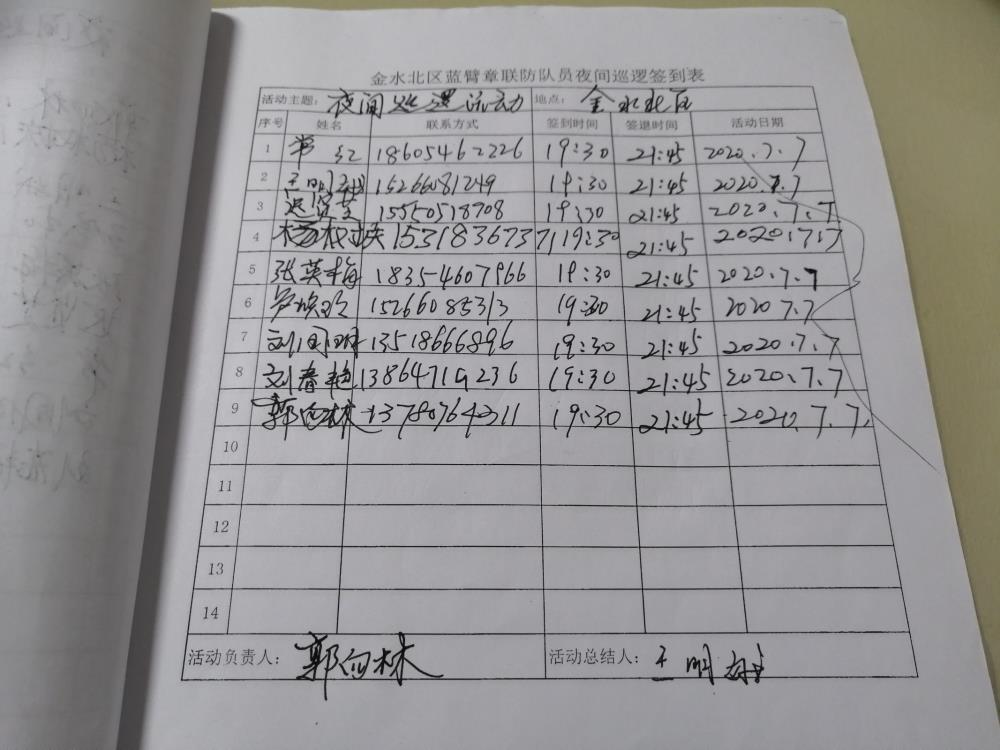 金水北区蓝臂章联防队员夜间巡逻签到表
活动主题：夜间巡逻活动 地点：金水北区
序号 姓名 联系方式 签到时间 签退时间 活动日期
1 常红 18605462226 19:30 21:45 2020.7.7
2 王明 15266081249 19:30 21:45 2020.7.7
3 15550518908 19:30 21:45 2020.7.7
4 杨 15318367371 19:30 21:45 2020.7.7
5 张英梅 18354607966 19:30 21:45 2020.7.7
6 15266085313 19:30 21:45 2020 7.7
7 刘国明 13518666896 19:30 21:45 2020.7.7
8 刘春艳 13864719236 19:30 21:45 2020.7.7
9 郭向林 13780764211 19:30 21:45 2020.7.7.
10
11
12
13
14
活动负责人：郭向林 活动总结人：王明